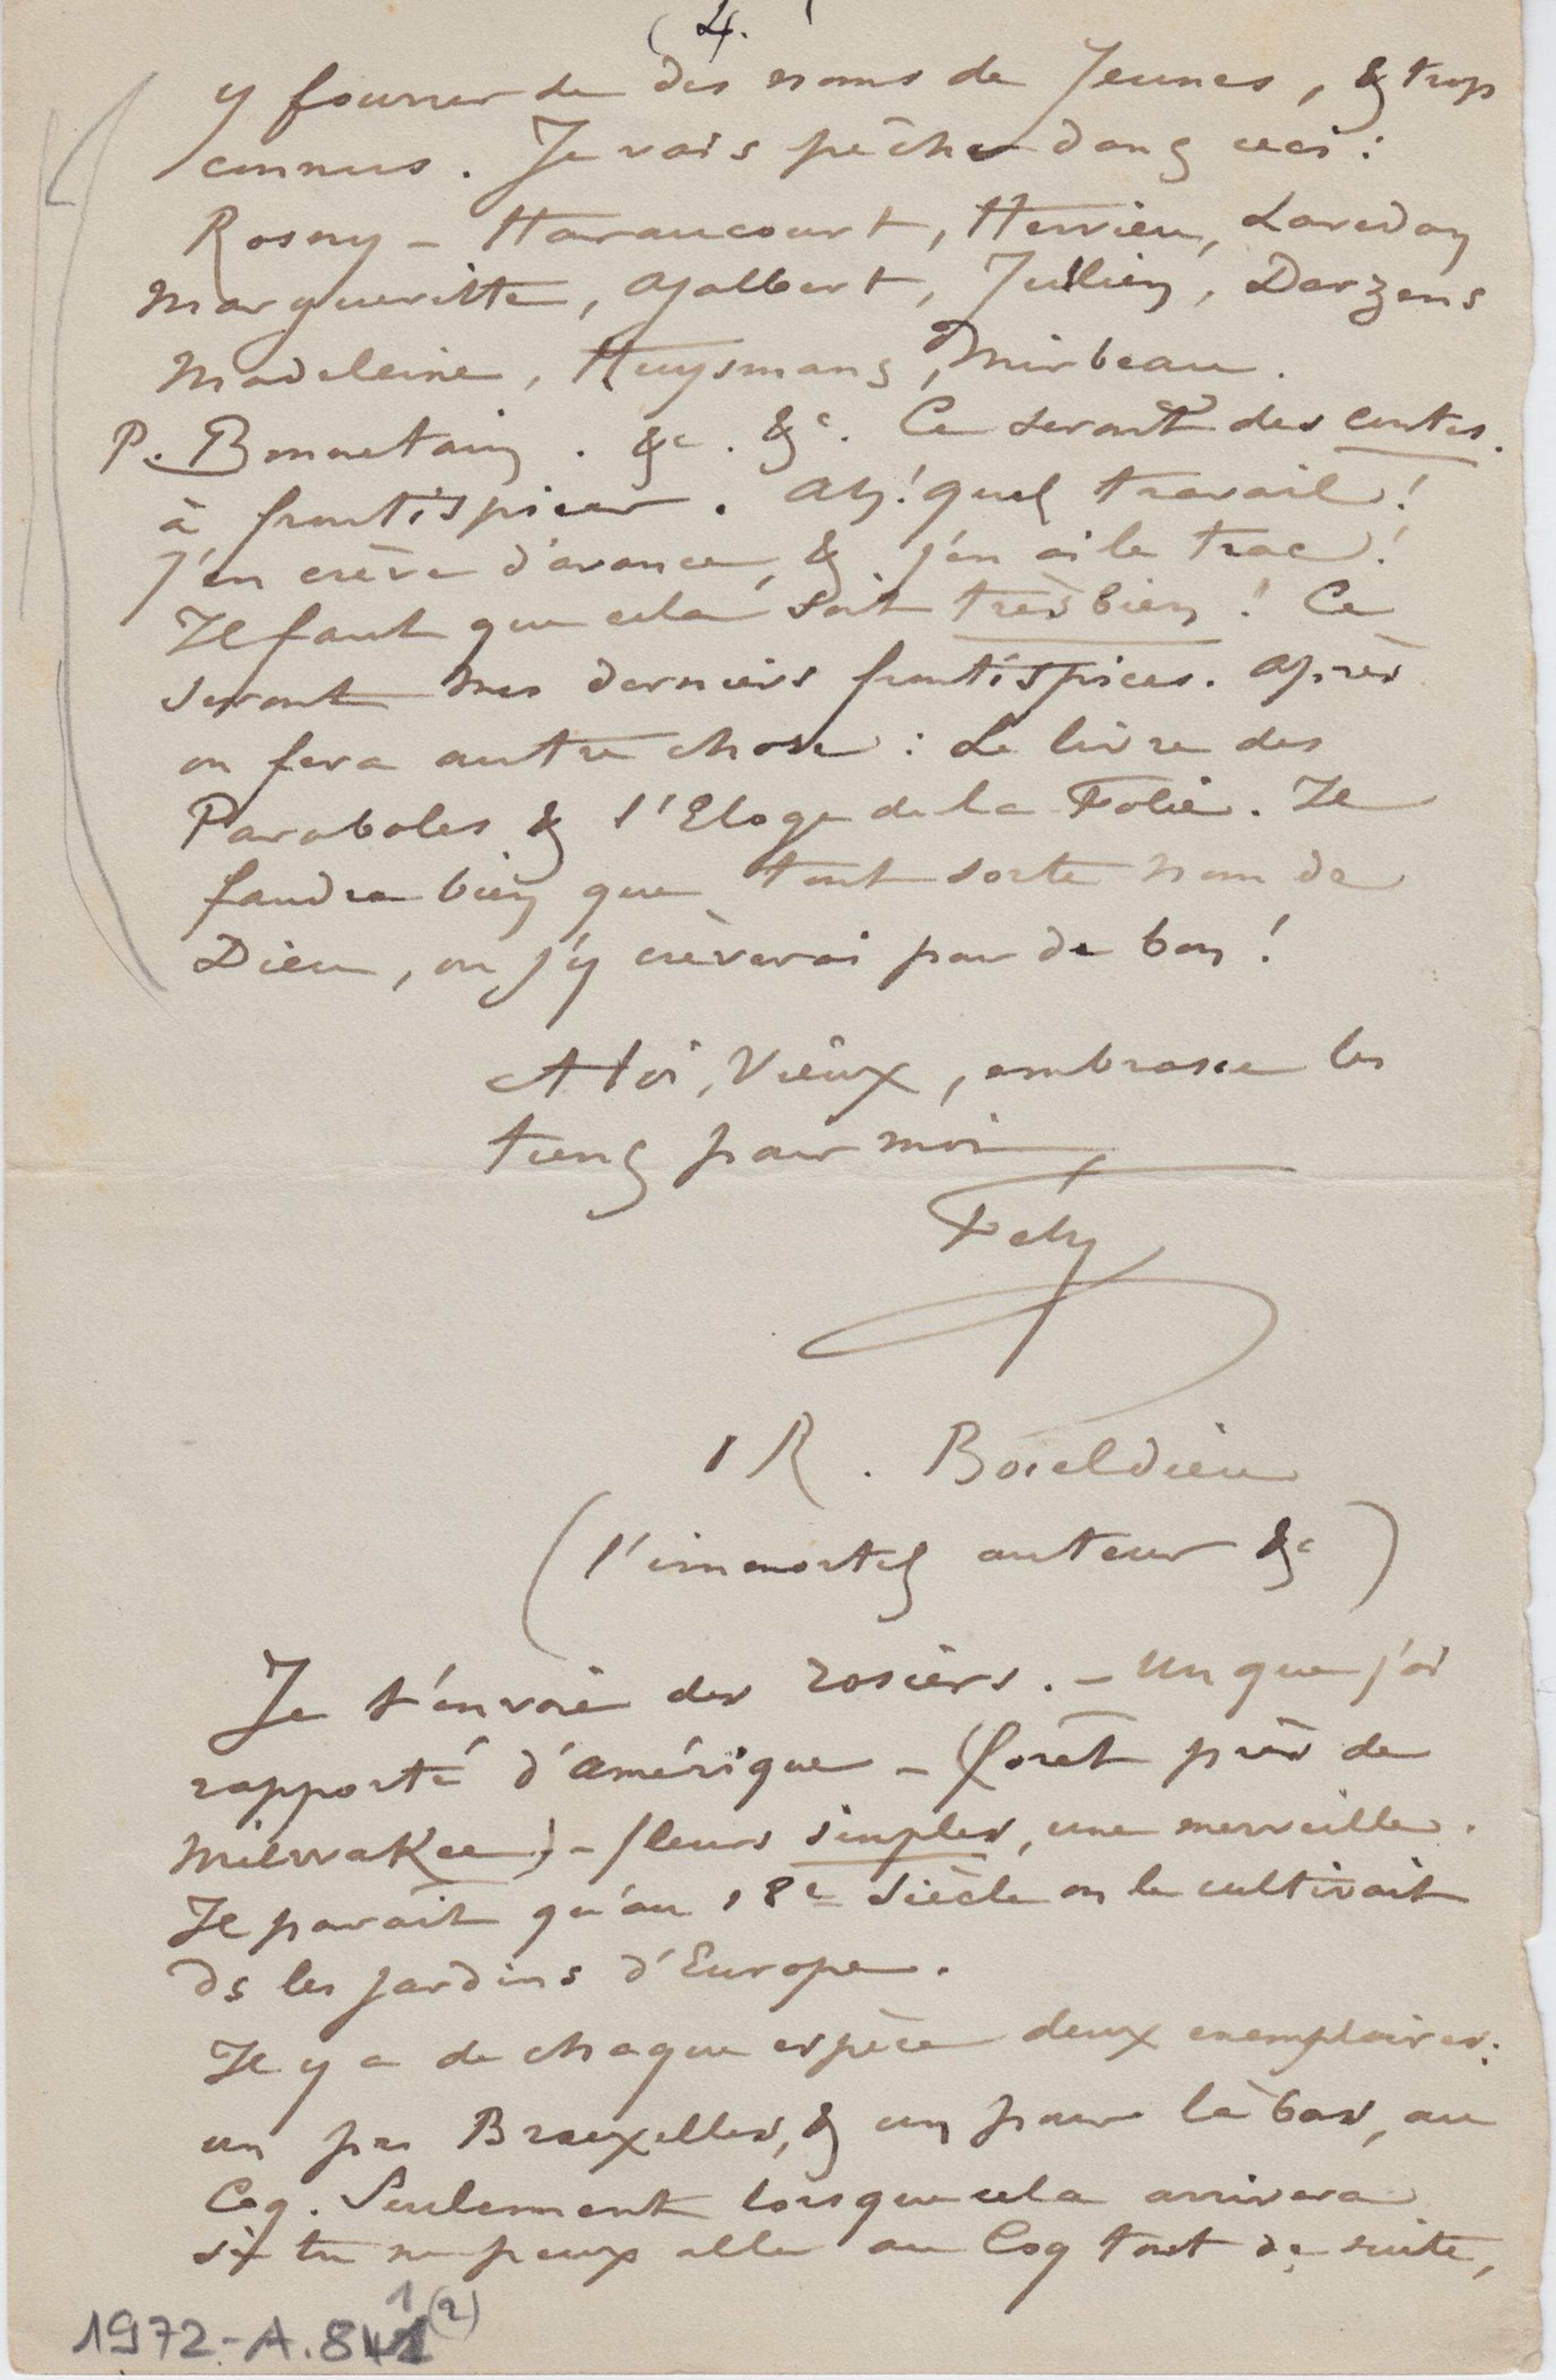 (4.
y fourrer de des noms de Jeunes, & trop
connus. Je vais pêcher dans ceci :
Rosny – Haraucourt, Hervieu, Lavedan
Margueritte, Ajalbert, Jullien, Darzens
Madeleine, Huysmans, Mirbeau.
P. Bonnetain. &c. &c. Ce seront des contes.
à frontispicer. Ah! quel travail!
J'en crève d'avance, & j'en ai le trac!
Il faut que cela soit très bien! Ce
seront mes derniers frontispices. Après
on fera autre chose : Le livre des
Paraboles & l'Eloge de la Folie. Il
faudra bien que tout sorte nom de
Dieu, ou j'y crèverai pour de bon!
A toi, Vieux, embrasse les
tiens pour moi
Fély
1 R. Boieldieu
(l'immortel auteur &c)
Je t'envoie des rosiers. – Un que j'ai
rapporté d'Amérique – (forêt près de
Milwakee) – fleurs simples, une merveille.
Il paraît qu'au 18e siècle on le cultivait
ds les jardins d'Europe.
Il y a de chaque espèce deux exemplaires:
un pr Bruxelles, & un pour là bas, au
Coq. Seulement lorsque cela arrivera
si tu ne peux aller au Coq tout de suite,
1972-A.841 (2)